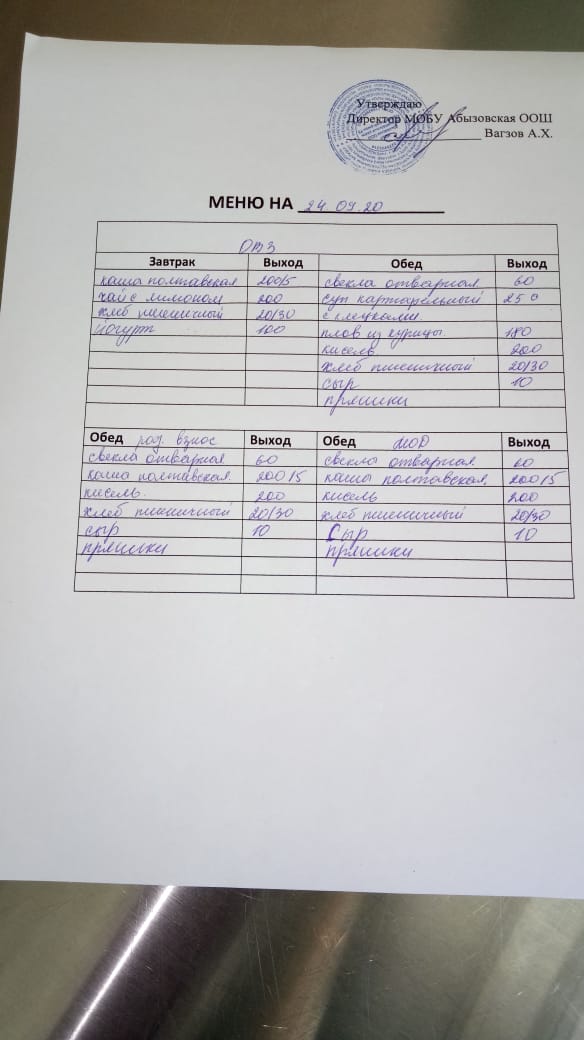 Утверждаю
Директор МОБУ Абызовская ООШ
Вагзов А.Х.
МЕНЮ НА 24.09.20
ОВЗ
Завтрак Выход Обед Выход
каша полтавская 200/5 свекла отварная 60
чай с лимоном 200 суп картофельный 250
хлеб пшеничный 20/30 с клецками.
йогурт 100 плов из курицы 180
кисель 200
хлеб пшеничный 20/30
сыр 10
пряники
Обед род. взнос Выход Обед МОД Выход
свекла отварная 60 свекла отварная 20
каша полтавская 200/5 каша полтавская 200/5
кисель. 200 кисель 200
хлеб пшеничный 20/30 хлеб пшеничный 20/30
сыр 10 Сыр 10
пряники пряники